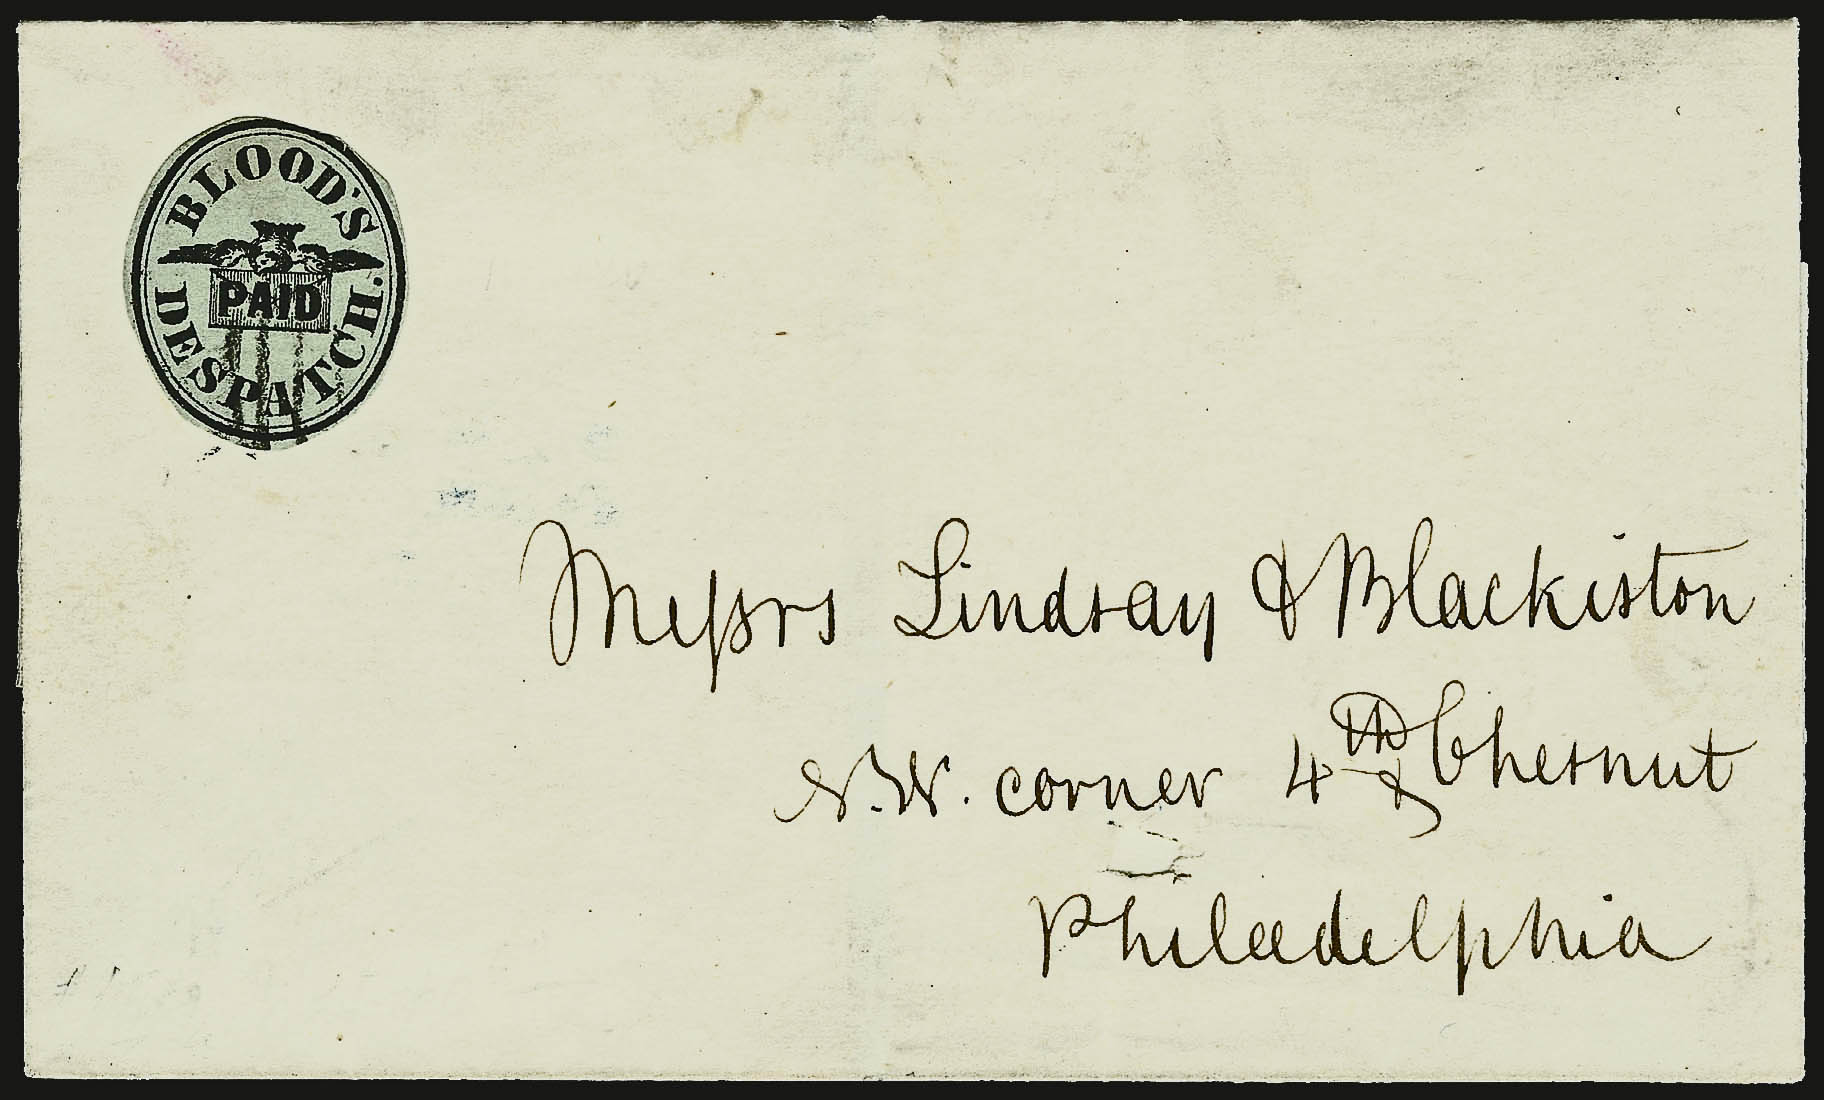 BLOOD'S
PAID
DESPATCH.
Messrs Lindsay & Blackiston
N.W. corner 4th & Chesnut
Philadelphia